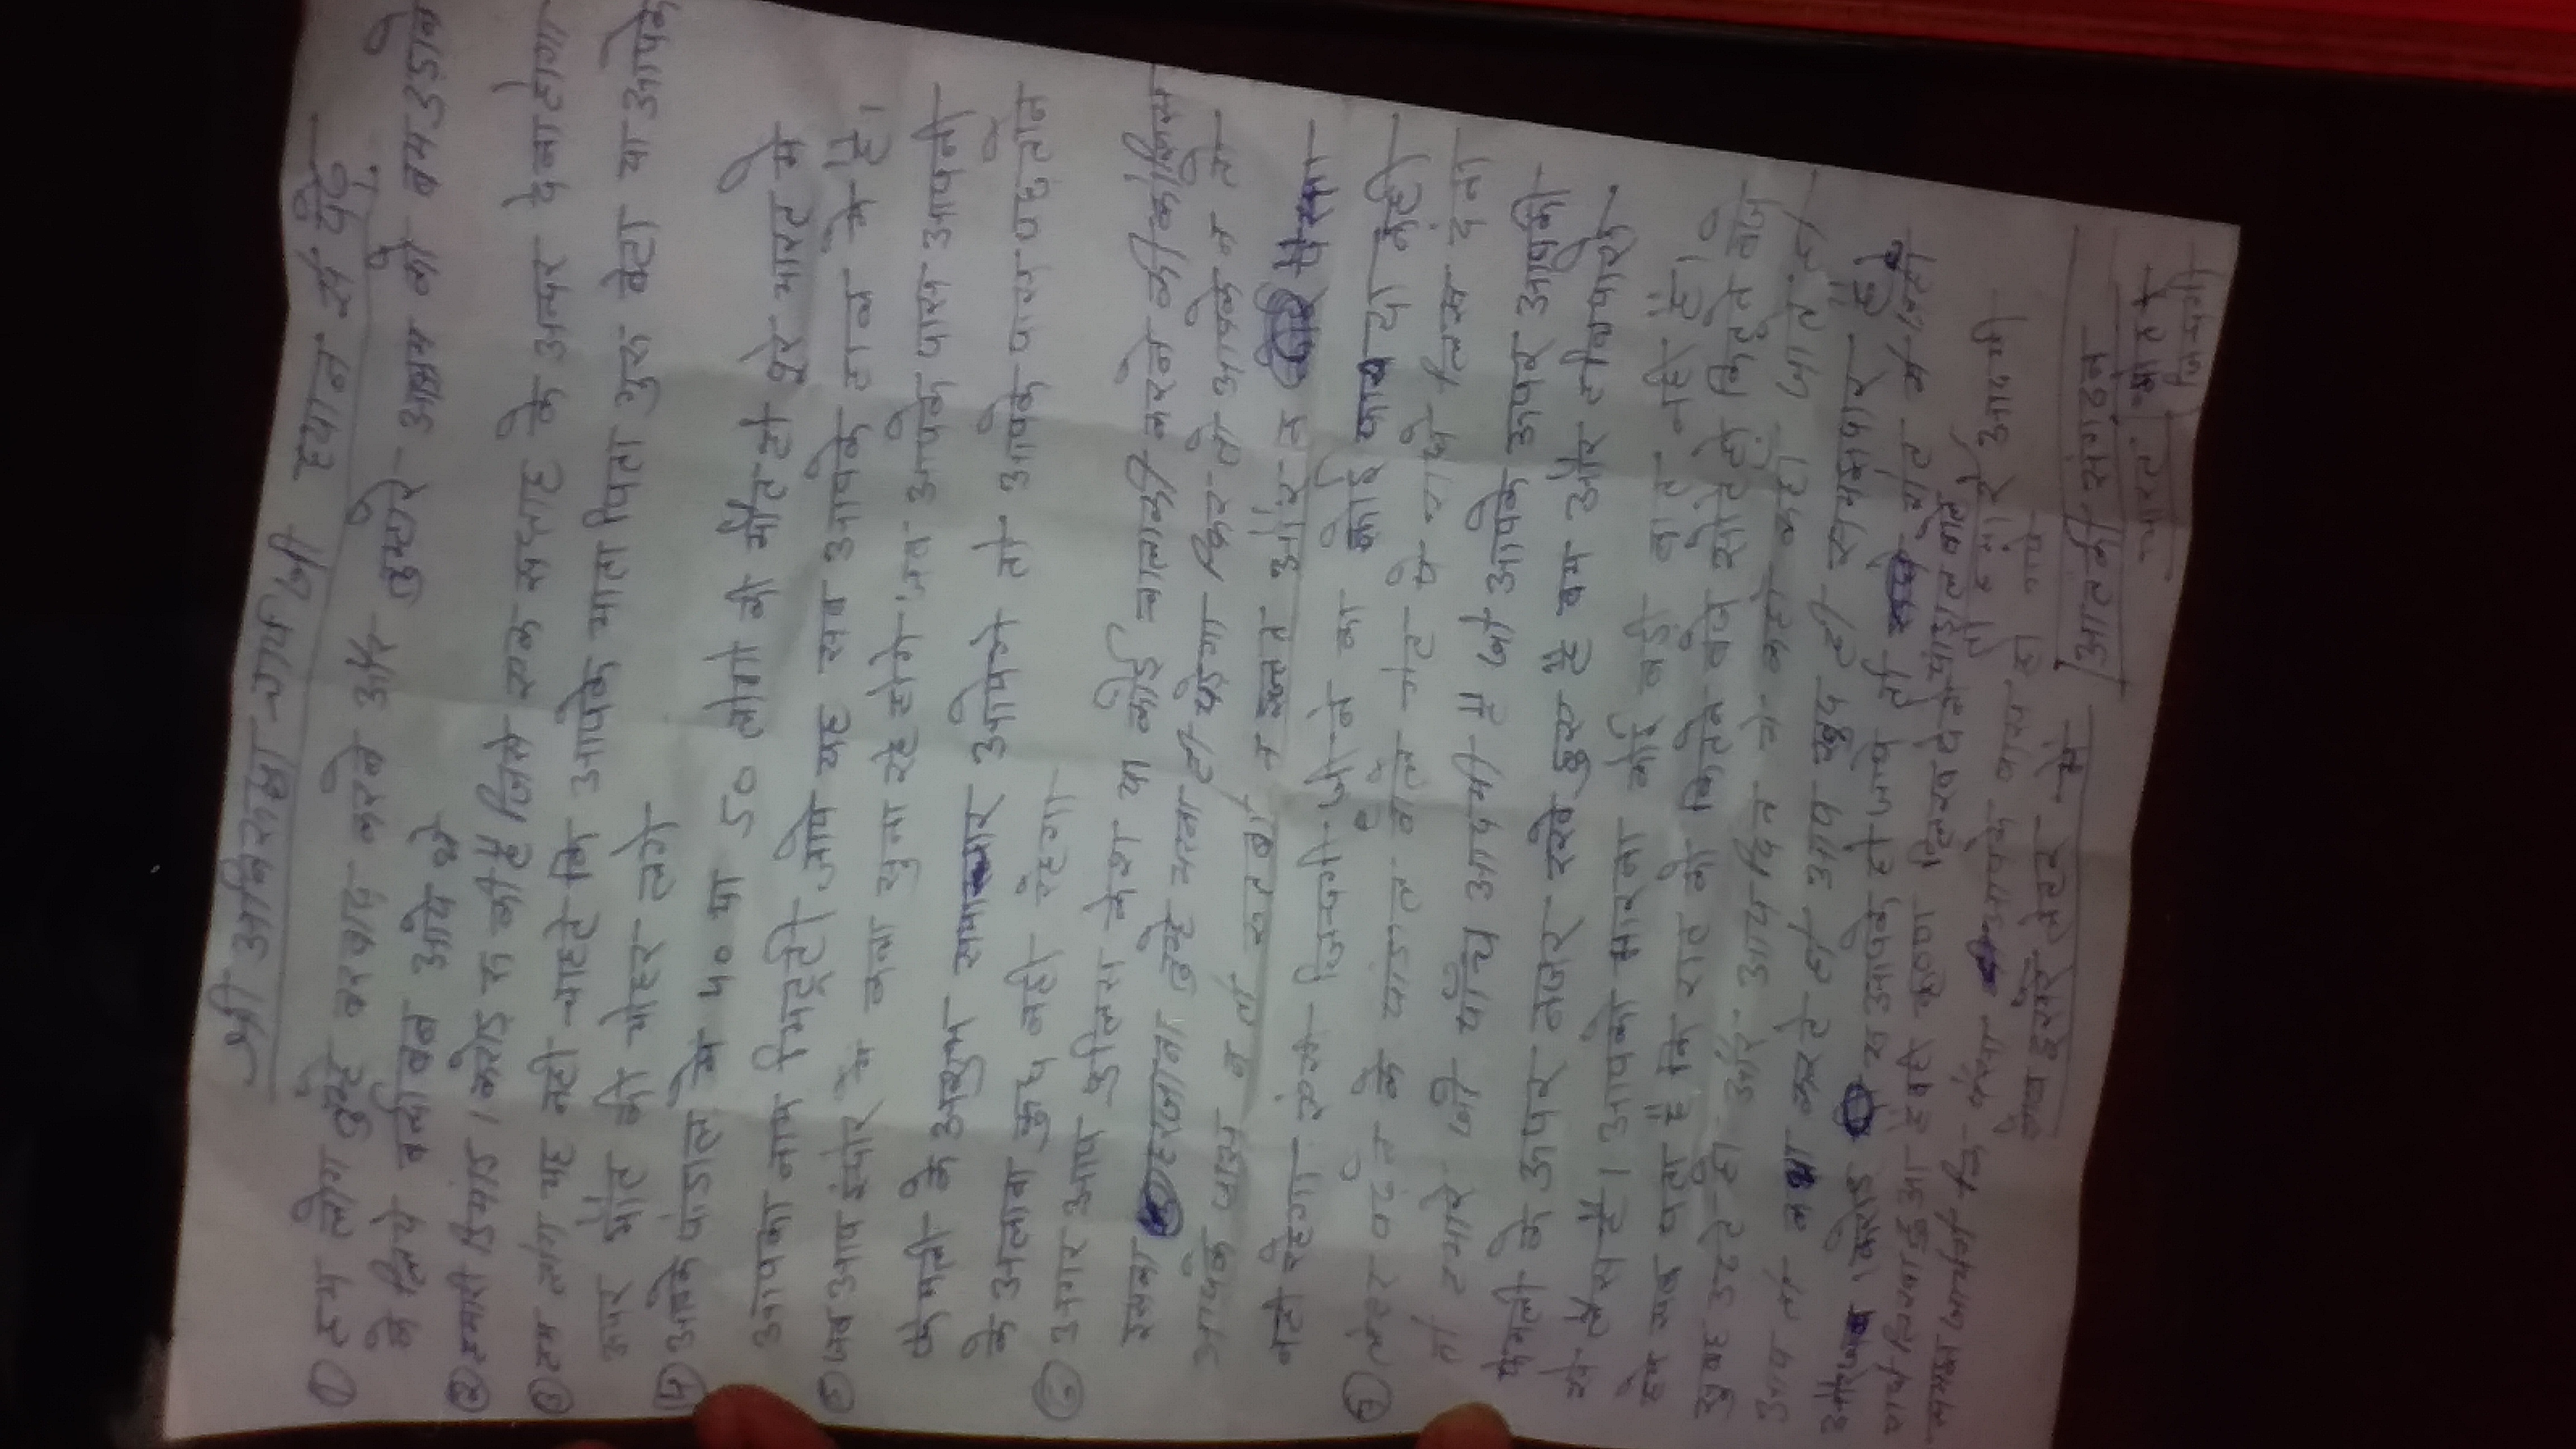 श्री अनिरुद्धा चार्य जी ध्यान से पढ़े
① हम लोग तुम्हे बरबाद करने और तुम्हारे आश्रम को बम उड़ाने
के लिये आये थे
② हमारी डिमांड 1 करोड़ रु की है जिसे एक सप्ताह के अन्दर देना होगा
③ हम लोग यह नही चाहते कि आपके माता पिता गुरु बेटा या आपके
ऊपर मौत की मोहर लगे
④ आपके पांडाल में 40 या 50 लोगो की मौत हो पूरे भारत मे
आपका नाम मिट्टी जाये यह सब आपके हाथ मे है।
⑤ जब आप इंदोर मे कथा सुना रहे होगे जब आपके पास आपनी
फैमली के अशुभ समाचार आयेगे तो आपके पास पछताने
के अलावा कुछ नही रहेगा
⑥ अगर आप पुलिस केश या कोई चालाकी करने की कोशिस
इसका हरजाना तुम्हे भरना ही पड़ेगा फिर तो आपके न तो
आपके पास न तो रुतबा न इज्जत और न पैसा
नही रहेगा ऐसी जिन्दगी जीने का कोई फायदा नही
⑦ लेटर पढ़ने के पांडाल वाले गेट पे राधे लिख देना
तो हमारे जो पाँच आदमी है जो आपके ऊपर आपकी
फेमली के ऊपर नजर रखे हुए है बम और हथियारो
से लैस है। आपको मारना कोई बड़ी बात नही है।
हमे सब पता है कि रात को कितने बजे सोते हो कितने बजे
सुबह उठते हो और आप दिन मे कहाँ कहाँ जाते हो
आप तो कथा करते हो आप खुद ही समझदार है।
और जब 1 करोड़ रु आपके हो जाये तो गेट मे जहाँ
राधे लिखा हुआ है वही कृष्ण लिख देना पांडाल वाले
तो हमारे आदमी
समझ जायेगे कि पैसा आपके पास हो गये
शेष दूसरे लेटर में
आतंकी संगठन
भारत मौत र
जिन्दगी